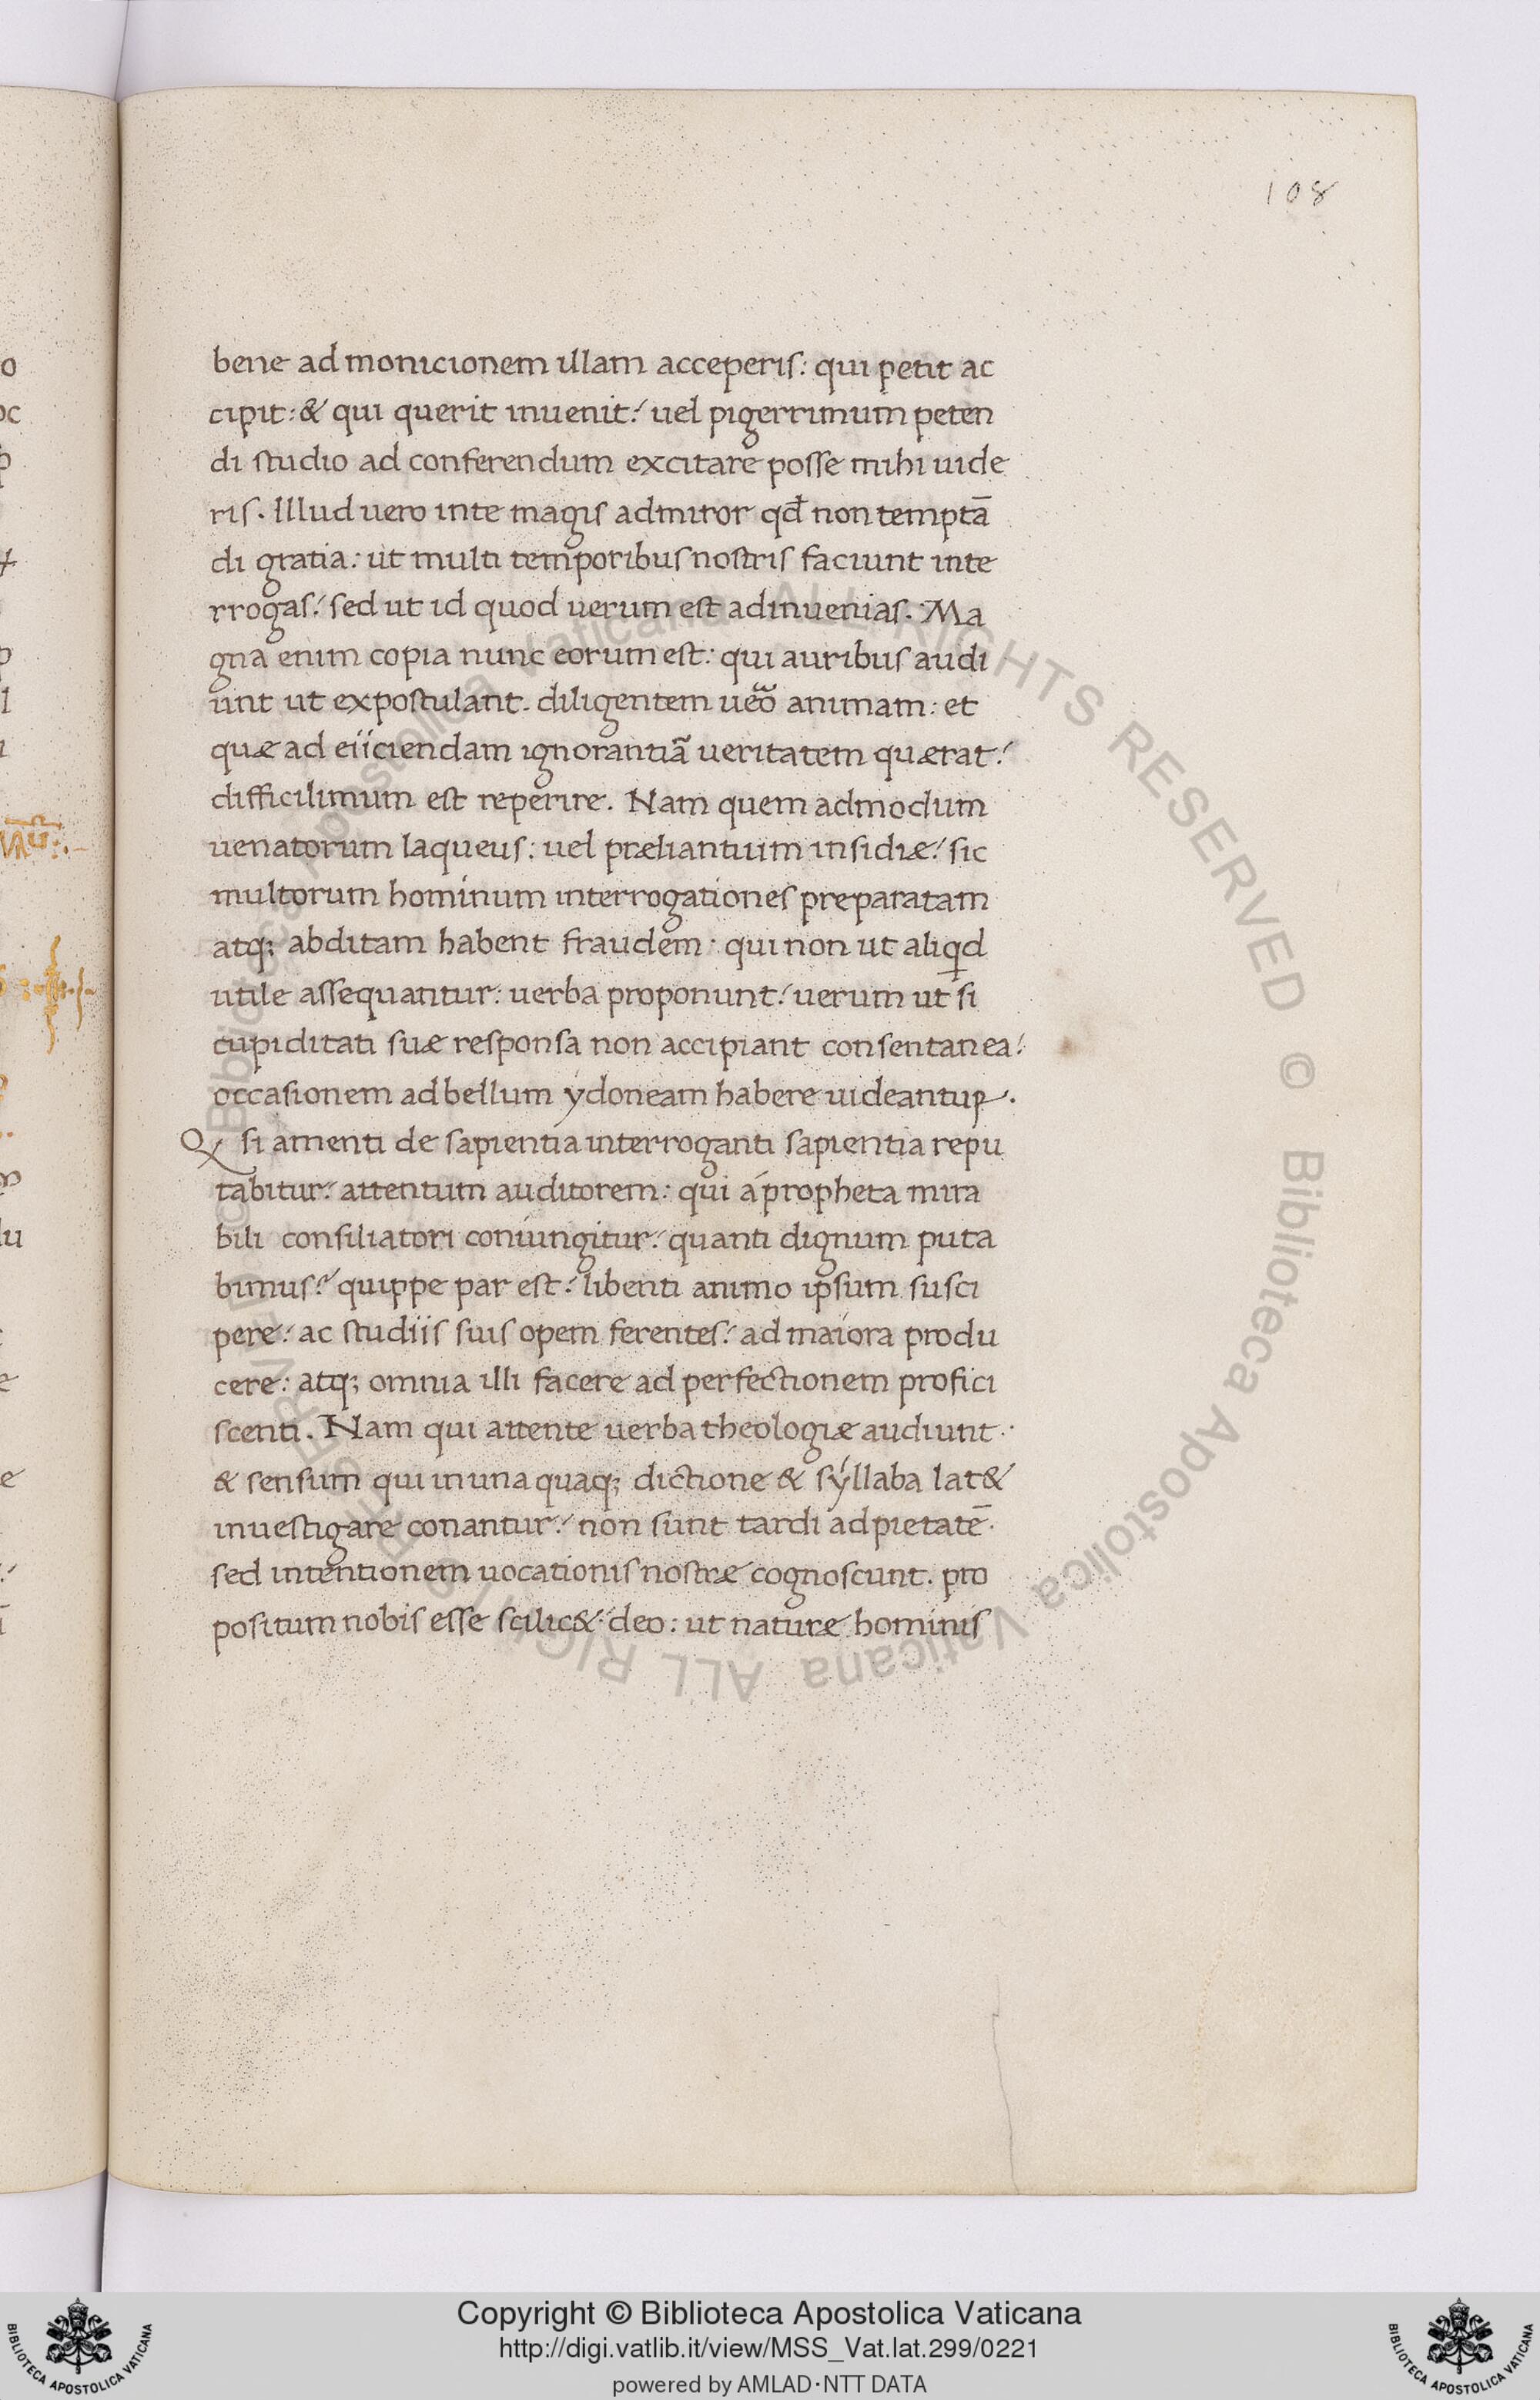 108
bene ad monicionem illam acceperis: qui petit ac
cipit: & qui querit inuenit: uel pigerrimum peten
di studio ad conferendum excitare posse mihi uide
ris. Illud uero inte magis admiror qđ non temptā
di gratia: ut multi temporibus nostris faciunt inte
rrogas: sed ut id quod uerum est adinuenias. Ma
gna enim copia nunc eorum est: qui auribus audi
unt ut expostulant. diligentem ueõ animam: et
quæ ad eiiciendam ignorantiã ueritatem quærat:
difficilimum est reperire. Nam quem admodum
uenatorum laqueus: uel præliantium insidiæ: sic
multorum hominum interrogationes preparatam
atq; abditam habent fraudem: qui non ut aliqd
utile assequantur: uerba proponunt: uerum ut si
cupiditati suæ responsa non accipiant consentanea:
occasionem ad bellum ydoneam habere uideantur.
Q si amenti de sapientia interroganti sapientia repu
tabitur: attentum auditorem: qui á propheta mira
bili consiliatori coniungitur: quanti dignum puta
bimus? quippe par est: libenti animo ipsum susci
pere: ac studiis suis opem ferentes: ad maiora produ
cere: atq; omnia illi facere ad perfectionem profici
scenti. Nam qui attente uerba theologiæ audiunt.
& sensum qui in una quaq; dictione & syllaba lat&
inuestigare conantur: non sunt tardi ad pietatē.
sed intentionem uocationis nostræ cognoscunt. pro
positum nobis esse scilic& deo: ut naturæ hominis
Copyright © Biblioteca Apostolica Vaticana
http://digi.vatlib.it/view/MSS_Vat.lat.299/0221
powered by AMLAD·NTT DATA
BIBLIOTECA APOSTOLICA VATICANA
BIBLIOTECA APOSTOLICA VATICANA